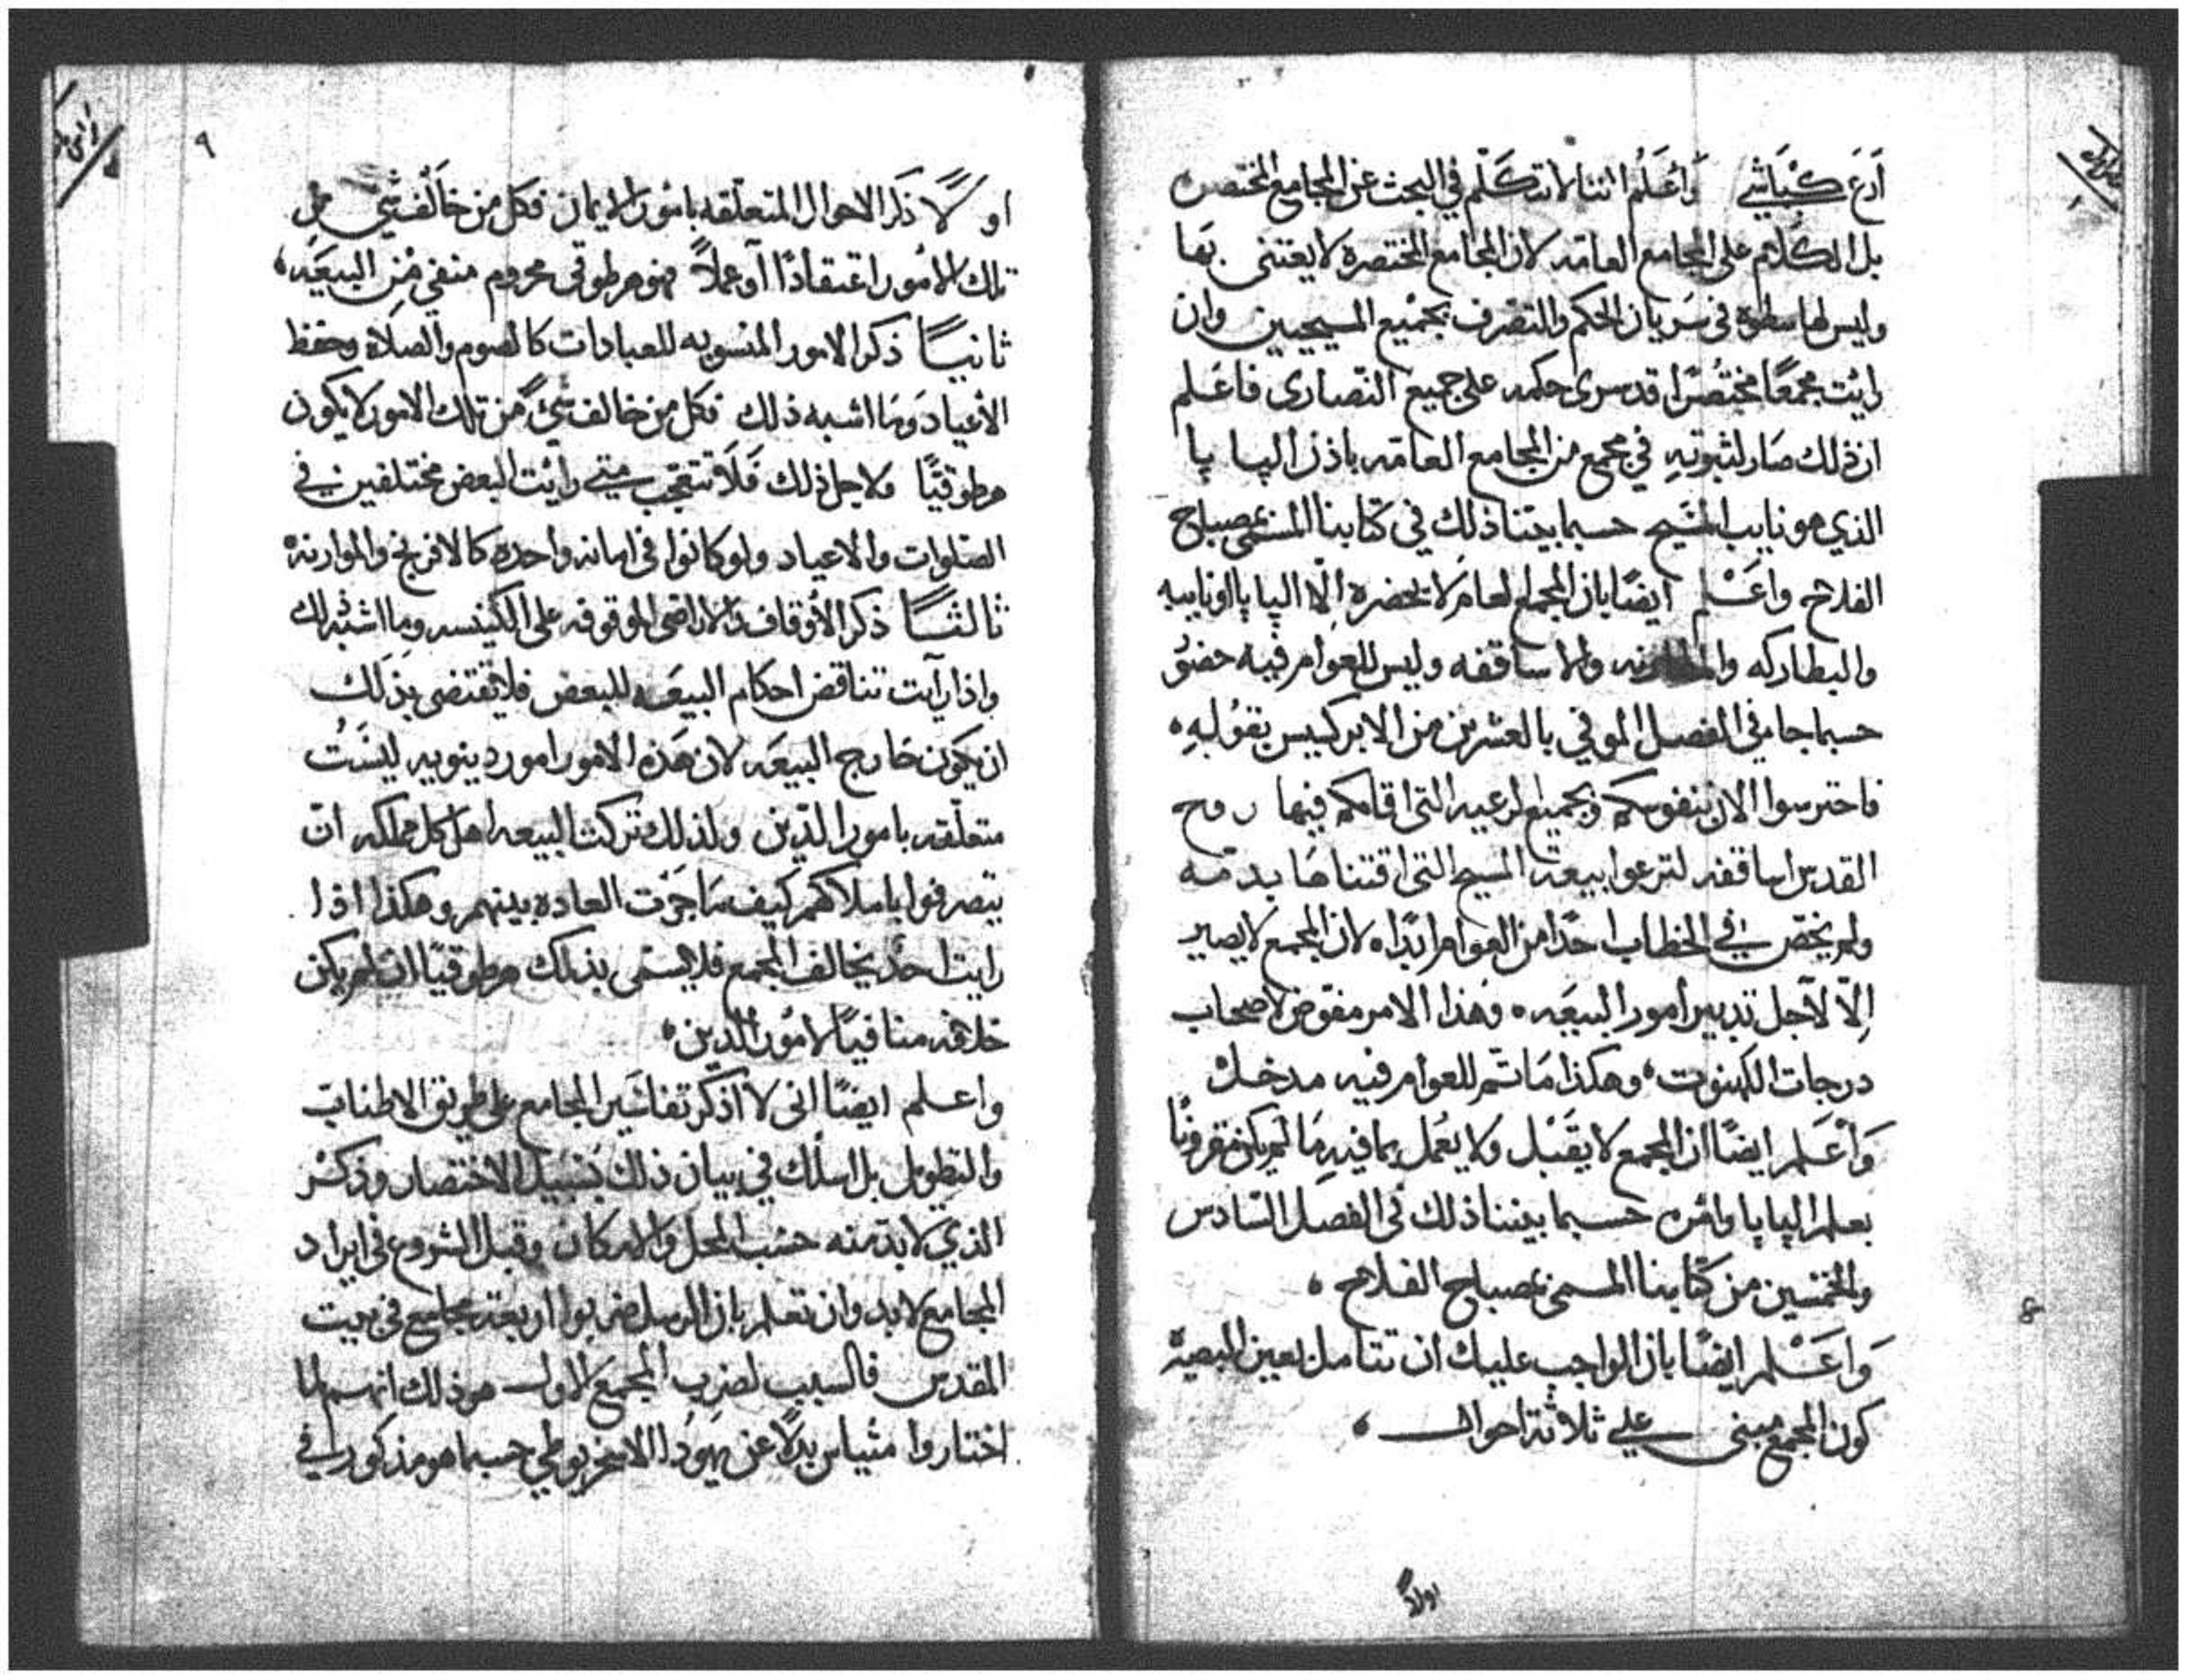 اَرعَ كبَاشي وَاعَلم اننا لا نتكلّم في البحث عن المجامع المختصره
بل الكلام على المجامع العامّه لان المجامع المختصره لا يعتنى بها
وليس لها سطوة في سَريان الحكم والتصرف بجميع المسيحيين وان
رايت مجمعًا مختصرًا قد سرى حكمه على جميع النصارى فاعَلم
ان ذلك صَار لثبوتهِ في مجمع من المجامع العامّه باذن الپا پا
الذي هو نايب المسَيح حسبما بيّنا ذلك في كتابنا المسمّى بمصباح
الفلاح واعَلم ايضًا بان المجمع العام لا يحضره الّا الپاپا او نايبه
والبطاركه والمطارنه والاساقفه وليس للعوام فيه حضوُ
حسبما جا في الفصل الموفي بالعشرين من الابركسيس بقوُلهِ ه
فاحترسوا الان بنفوسكم وبجميع الرعيه التى اقامكم فيها روح
القدس اساقفه لترعوا بيعة المسيح التى اقتناها بدمّه
ولم يختصّ في الخطاب احدًا من العوام ابدًا ه لان المجمع لا يصير
اِلّا لآجل تدبير أمور البيعَه ه وهَذا الامر مفوّض لاصحاب
درجات الكهنوت ه وهكذا مَا تم للعوام فيه مدخل
وَاعَلم ايضًا ان المجمع لا يقَبل ولا يعُمل بما فيهِ مَا لم يكن مقرونًا
بعلم الپاپا وامره حسبما بيننا ذلك في الفصل السَادس
والخمسين من كتابنا المسمى بمصباح الفلاح ه
وَاعَلم ايضًا بان الواجب عليك ان تتامل بعين البصيرة
كون المجمع مبنى علي ثلاثة احوال ه
اولاً
٩
اولًا ذكَر الاحوال المتعلّقه بامُور الايمان فكل من خاَلف شي من
تلك الامُور اعتقادًا آو عملاً فهو هرطوقى محروم منفي مِن البيعَه ه
ثانيًا ذكر الامور المنسوبه للعبادات كالصوم والصلاة وحفظ
الأعياد وَمَا اشبه ذلك فكل من خالف شيء من تلك الامور لا يكون
هرطوقيًا ولاجل ذلك فَلا تتعجّب متي رايت البعض مختلفين في
الصَلوات والاعياد ولو كانوا في امانه واحده كالافرنج والموارنه
ثالثًا ذكر الأوقاف والاراضى الموقوفه على الكنيسه وما اشبه ذلك
واذا رآيت تناقض احكام البيعَه للبعض فلا تقتضى بذلك
ان يكون خارج البيعَه لان هَذه الامور امور دينويه ليسَت
متعلّقه بامور الدّين ولذلك تركت البيعه اهل كل مملكه ان
يتصرفوا باملاكهم كيف مَا جَرَت العاده بينهم وهكذا اذا
رايت احدٌ يخالف المجمع فلا يسّمى بذلك هرطوقيًا ان لم يكن
خلافه منافيًا لامُور الدّين ه
واعلم ايضًا انى لا اذكر تفاسَير المجامع على طريق الاطناب
والتطويل بل اسلُك في بيان ذلك بسَبيل الاختصار وذكر
الذي لا بد منه حسَب المحل والامكان وقبل الشروع في ايراد
المجامع لا بد وان تعلم بان الرسل ضربوا اربعة مجامع في بيت
المقدس فالسبب لضرب المجمع الاول هو ذلك انهم لما
اختاروا متياس بدلًا عن يهَودا الاسخريوطي حسبما هو مذكور في